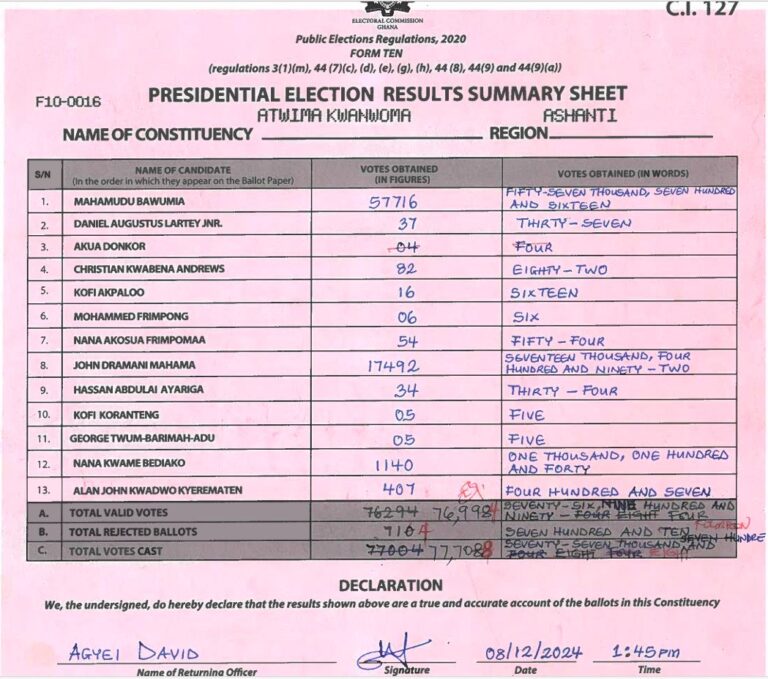 C.I. 127
ELECTORAL COMMISSION
GHANA
Public Elections Regulations, 2020
FORM TEN
(regulations 3(1)(m), 44 (7)(c), (d), (e), (g), (h), 44 (8), 44(9) and 44(9)(a))
F10-0016 PRESIDENTIAL ELECTION RESULTS SUMMARY SHEET
ATWIMA KWANWOMA ASHANTI
NAME OF CONSTITUENCY REGION
S/N NAME OF CANDIDATE (In the order in which they appear on the Ballot Paper) VOTES OBTAINED (IN FIGURES) VOTES OBTAINED (IN WORDS)
1. MAHAMUDU BAWUMIA 57716 FIFTY-SEVEN THOUSAND, SEVEN HUNDRED AND SIXTEEN
2. DANIEL AUGUSTUS LARTEY JNR. 37 THIRTY-SEVEN
3. AKUA DONKOR 04 FOUR
4. CHRISTIAN KWABENA ANDREWS 82 EIGHTY-TWO
5. KOFI AKPALOO 16 SIXTEEN
6. MOHAMMED FRIMPONG 06 SIX
7. NANA AKOSUA FRIMPOMAA 54 FIFTY-FOUR
8. JOHN DRAMANI MAHAMA 17492 SEVENTEEN THOUSAND, FOUR HUNDRED AND NINETY-TWO
9. HASSAN ABDULAI AYARIGA 34 THIRTY-FOUR
10. KOFI KORANTENG 05 FIVE
11. GEORGE TWUM-BARIMAH-ADU 05 FIVE
12. NANA KWAME BEDIAKO 1140 ONE THOUSAND, ONE HUNDRED AND FORTY
13. ALAN JOHN KWADWO KYEREMATEN 407 FOUR HUNDRED AND SEVEN
A. TOTAL VALID VOTES 76294 76,994 SEVENTY-SIX, NINE HUNDRED AND NINETY-FOUR EIGHT FOUR
B. TOTAL REJECTED BALLOTS 710 4 SEVEN HUNDRED AND TEN FOURTEEN
C. TOTAL VOTES CAST 77004 77,708 SEVENTY-SEVEN THOUSAND, SEVEN HUNDRE AND FOUR EIGHT FOUR EIGHT
DECLARATION
We, the undersigned, do hereby declare that the results shown above are a true and accurate account of the ballots in this Constituency
AGYEI DAVID 08/12/2024 1:45pm
Name of Returning Officer Signature Date Time